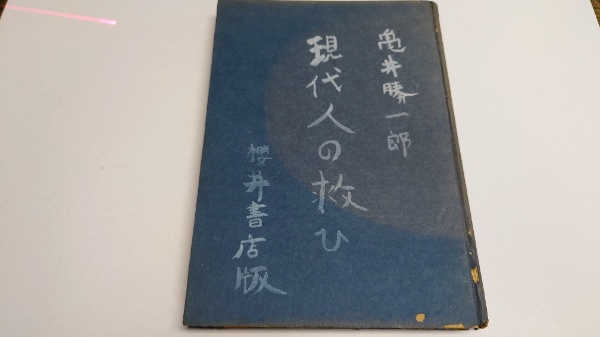 亀井勝一郎
現代人の救ひ
櫻井書店版